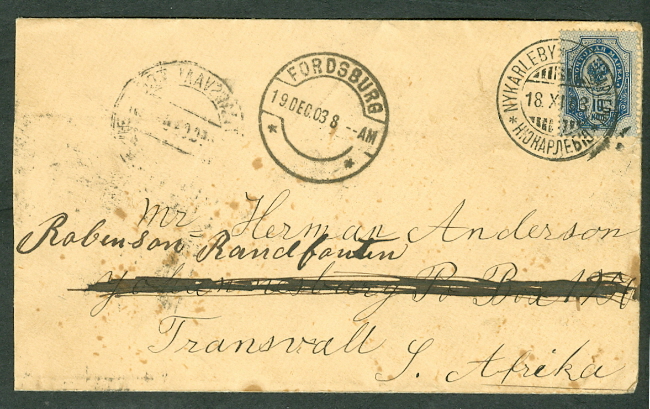 FORDSBURG
19 DEC. 03 8 - AM
* NYKARLEBY
18. XI. 03
* НЮКАРЛЕБЮ
10
Mr. Herman Anderson
Robinson Randfontein
Johannesburg Po Box 1906
Transvall S. Afrika